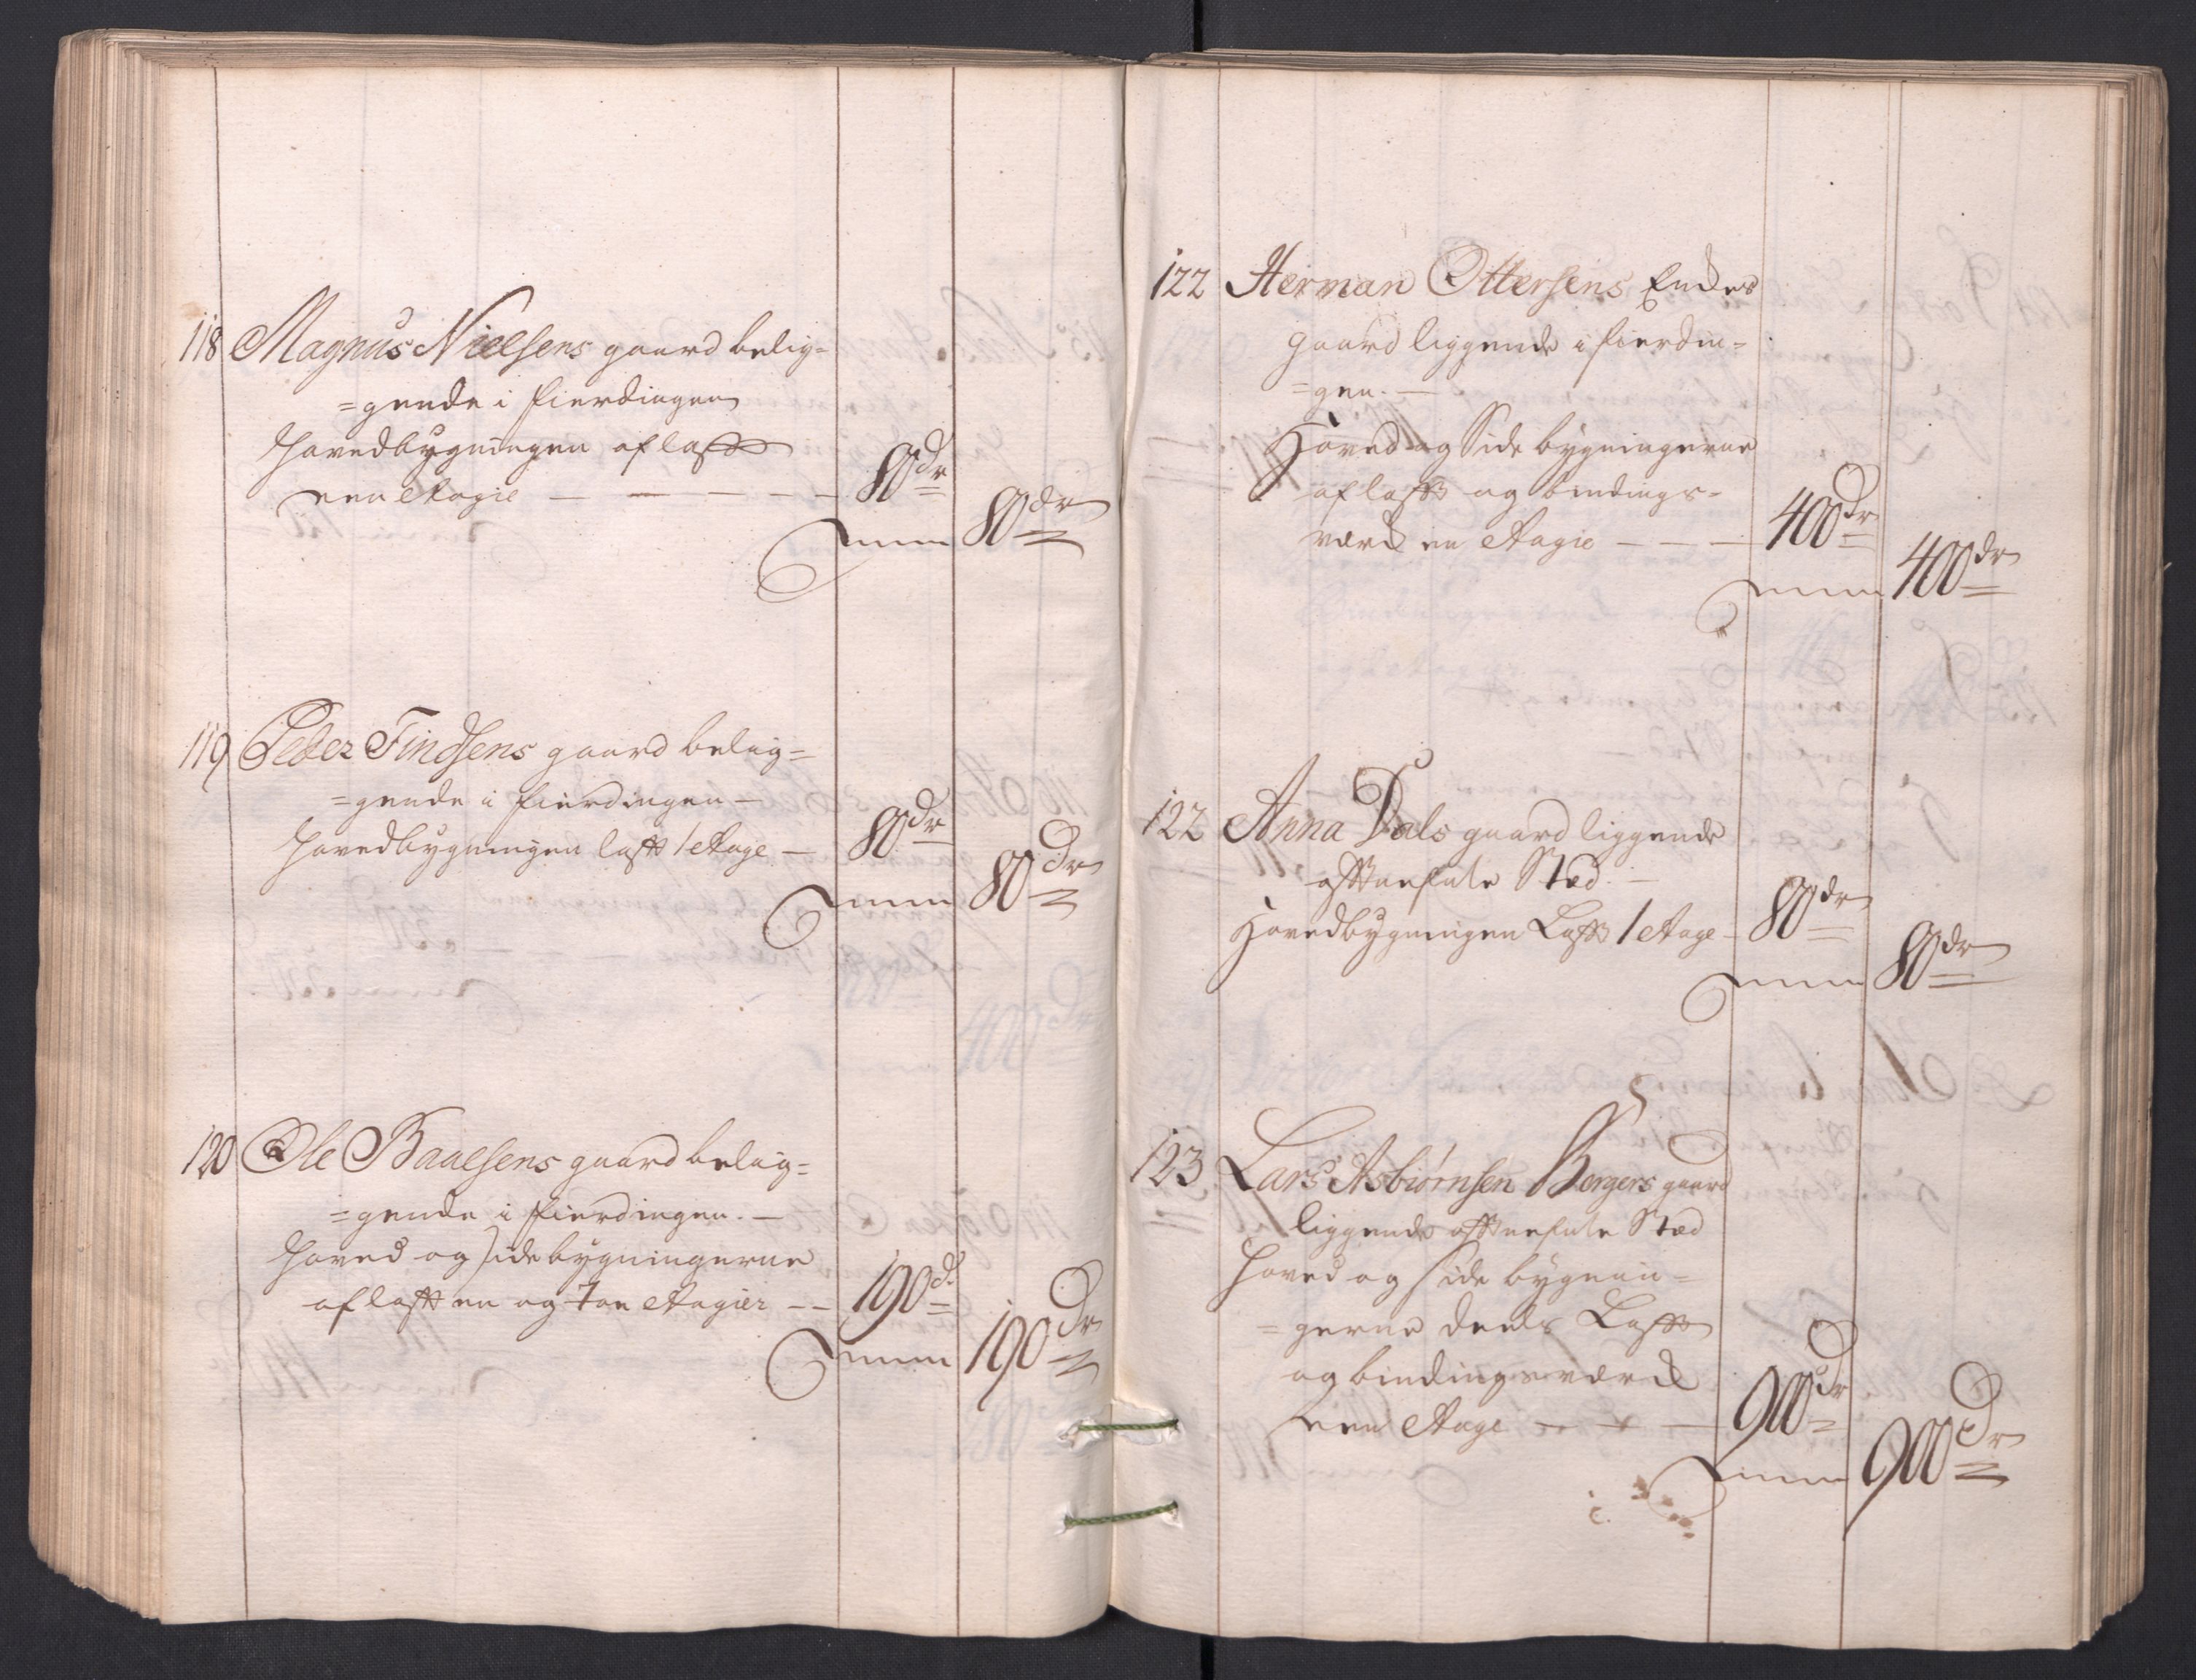 118 Magnus Nielsens gaard belig=
=gende i fierdingen
Hovedbygningen af laft
een Etagie — — — — — 80 dr
Summa 80 dr
119 Peder Findsens gaard belig=
=gende i fierdingen —
Hovedbygningen laft 1 Etage — 80 dr
Summa 80 dr
120 Ole Baaelsens gaard belig=
=gende i fierdingen. —
Hoved og Sidebygningerne
af laft en og toe Etagier — — 190 d.
Summa 190 dr
122 Herman Ottersens Enckes
gaard liggende i fierdin=
=gen. —
Hoved og Side bygningerne
af laft og bindings=
værck en Etagie — — — 400 dr
Summa 400 dr
122 Anna Dals gaard liggende
Stæd. —
Hovedbygningen Laft 1 Etage — 80 dr
Summa 80 dr
123 Lars Asbiørnsen Bergers gaard
liggende Stæd
Hoved og Side bygnin=
=gerne deels Laft
og bindingsværck
een Etage — — — 900 dr
Summa 900 dr